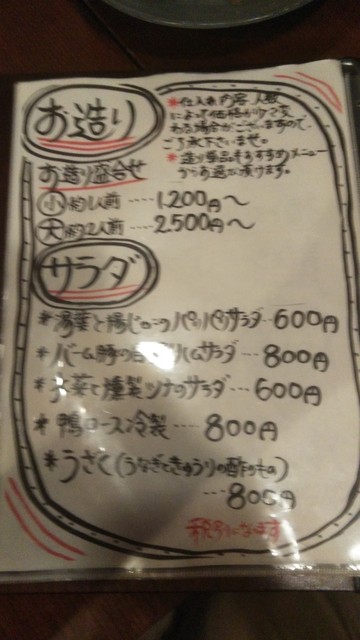 お造り
*仕入れ内容、人数
によって価格が少々変
わる場合がございますので、
ご了承下さいませ。
*造り単品もおすすめメニュー
からお選び頂けます。
お造り盛合せ
小 約1人前 ‥‥ 1,200円〜
大 約2人前 ‥‥ 2,500円〜
サラダ
*湯葉と揚じゃこのパリパリサラダ‥600円
ハムサラダ‥‥800円
*水菜と燻製ツナのサラダ‥‥600円
*鴨ロース冷製‥‥800円
*うざく(うなぎときゅうりの酢のもの)
‥‥800円
税別になります